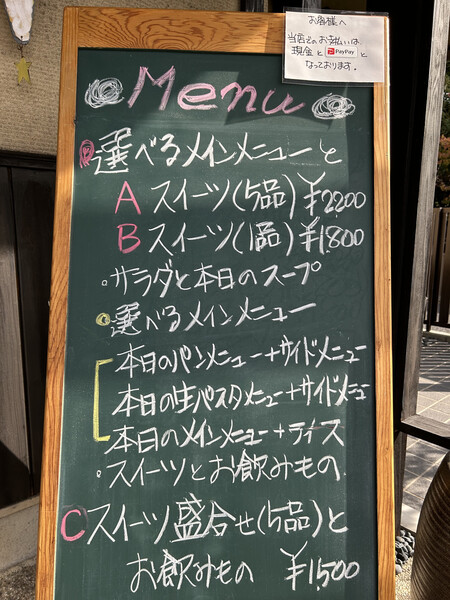 お客様へ
当店でのお支払いは
現金と PayPay と
なっております。
Menu
選べるメインメニューと
A スイーツ(5品) ¥2200
B スイーツ(1品) ¥1800
・サラダと本日のスープ
・選べるメインメニュー
本日のパンメニュー+サイドメニュー
本日の生パスタメニュー+サイドメニュー
本日のメインメニュー+ライス
・スイーツとお飲みもの
C スイーツ盛合せ(5品)と
お飲みもの ¥1,500